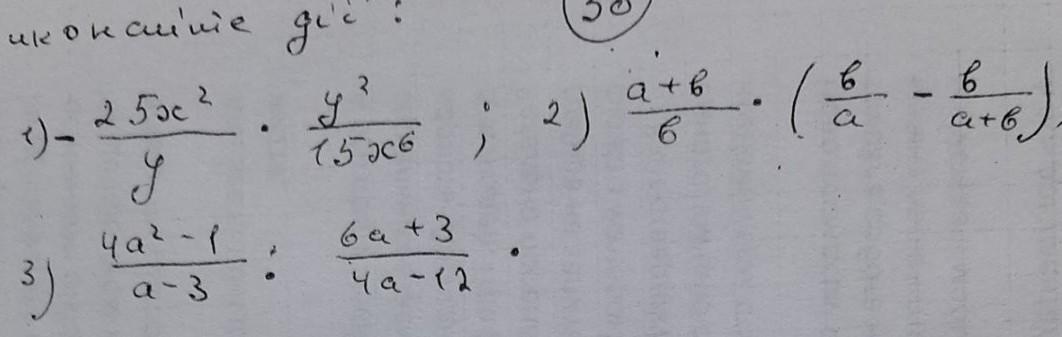 иконайте дії: 30
1) - 25x²/y · y²/15x⁶ ; 2) (a+b)/b · (b/a - b/(a+b)).
3) (4a² - 1)/(a - 3) : (6a + 3)/(4a - 12).